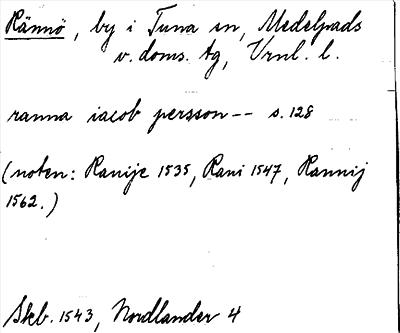 Rännö, by i Tuna sn, Medelpads
v. doms. tg, Vrnl. l.
ranna iacob persson -- s. 128
(noten: Ranije 1535, Rani 1547, Rannij
1562.)
Skb. 1543, Nordlander 4